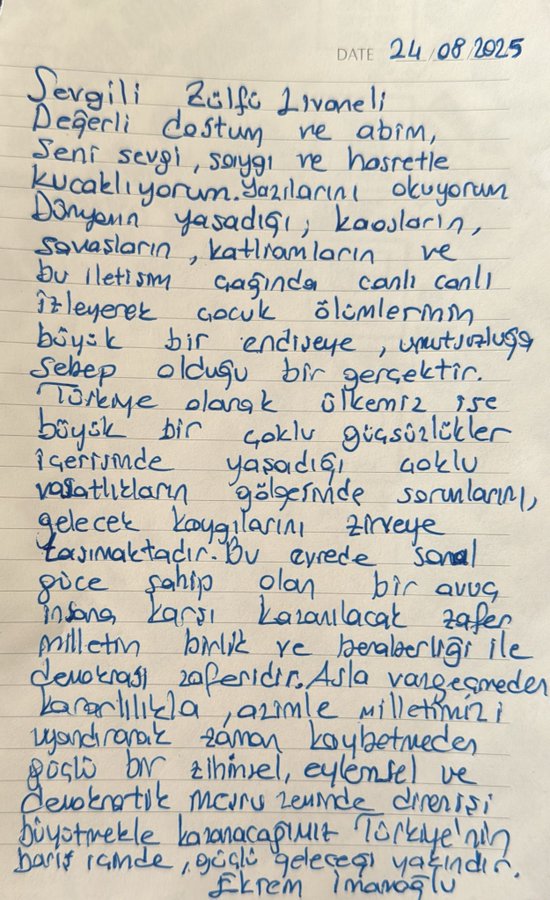 DATE 24/08/2025
Sevgili Zülfü Livaneli
Değerli dostum ve abim,
Seni sevgi, saygı ve hasretle
kucaklıyorum. Yazılarını okuyorum
Dünyanın yaşadığı, kaosların,
savaşların, katliamların ve
bu iletişim çağında canlı canlı
izleyerek çocuk ölümlerinin
büyük bir endişeye, umutsuzluğa
sebep olduğu bir gerçektir.
Türkiye olarak ülkemiz ise
büyük bir çoklu güçsüzlükler
içerisinde yaşadığı çoklu
gölgesinde sorunlarını,
gelecek kaygılarını zirveye
taşımaktadır. Bu evrede sanal
güce sahip olan bir avuç
insana karşı kazanılacak zafer
milletin birlik ve beraberliği ile
demokrasi zaferidir. Asla vazgeçmeden
kararlılıkla, azimle milletimizi
uyandırarak zaman kaybetmeden
güçlü bir zihinsel, eylemsel ve
demokratik meşru zeminde direnişi
büyütmekle kazanacağımız Türkiye'nin
barış içinde, güçlü geleceği yakındır.
Ekrem İmamoğlu